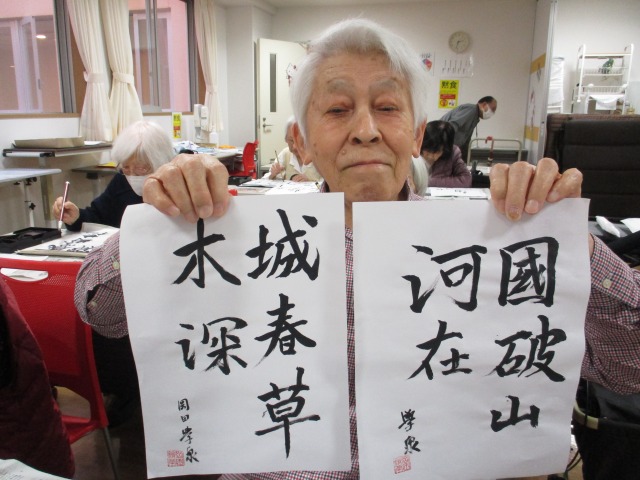 國破山
河在
學泉
城春草
木深
岡田學泉
黙食